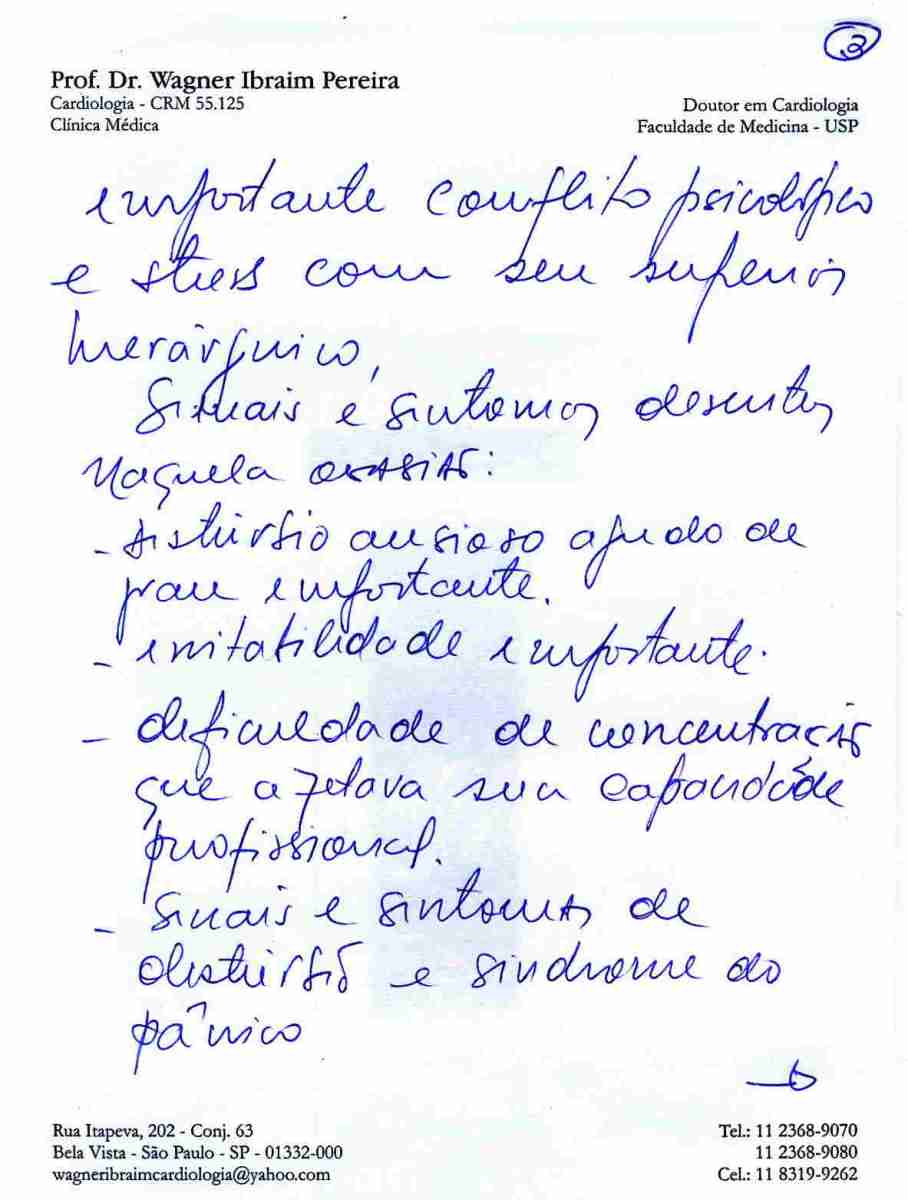 2
Prof. Dr. Wagner Ibraim Pereira
Cardiologia - CRM 55.125
Clínica Médica
Doutor em Cardiologia
Faculdade de Medicina - USP
importante conflito psicológico
e stress com seu superior
hierárquico,
Sinais e sintomas descritos
naquela ocasião:
- distúrbio ansioso agudo de
grau importante.
- irritabilidade importante.
- dificuldade de concentração
que afetava sua capacidade
profissional.
- Sinais e sintomas de
distúrbio e síndrome do
pânico
Rua Itapeva, 202 - Conj. 63
Bela Vista - São Paulo - SP - 01332-000
wagneribraimcardiologia@yahoo.com
Tel.: 11 2368-9070
11 2368-9080
Cel.: 11 8319-9262